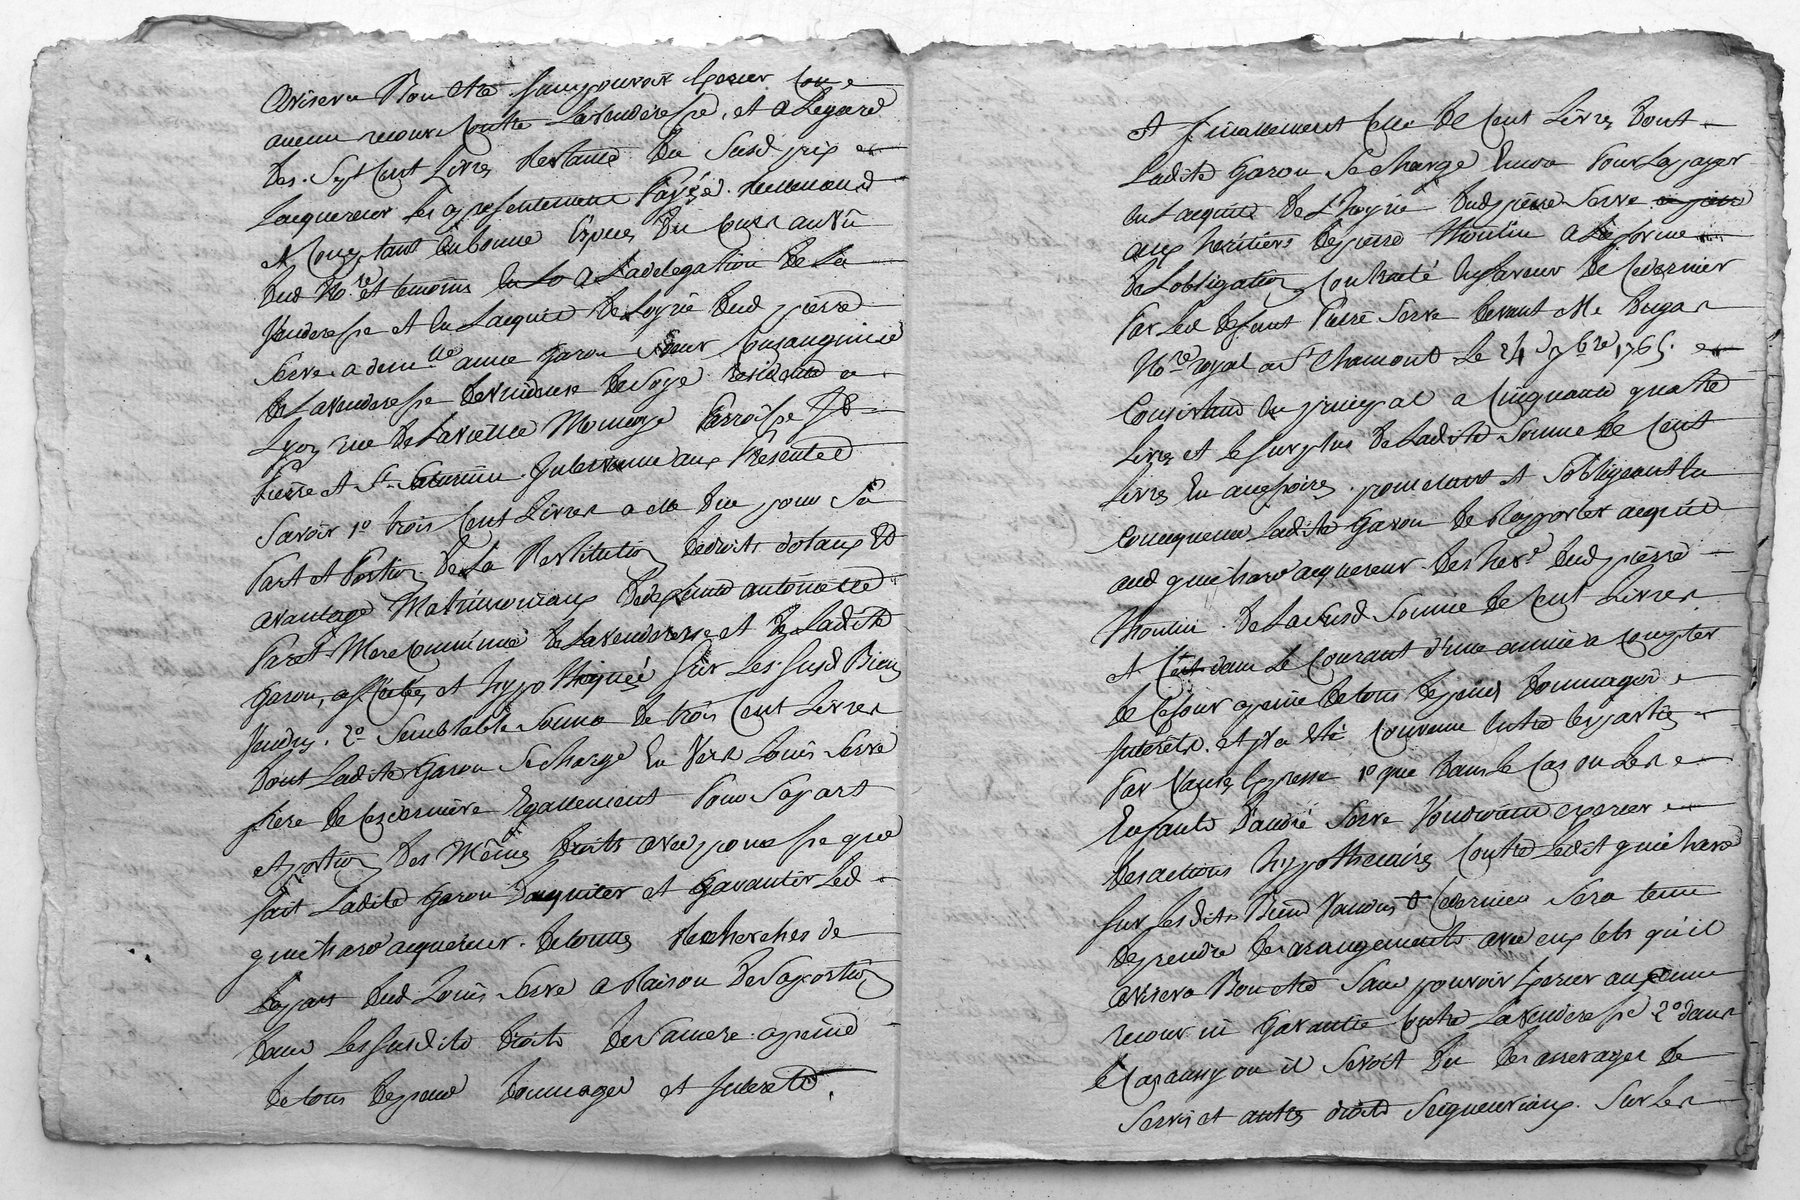 avisera bon etre sans pouvoir exercer
aucun recours contre la venderesse, et a l'egard
des sept cent livres restante du susd prix
l'acquereur les a presentement payée reellement
et comptant en bonne espèces du cours au vu
dud No.re et temoins a la delegation de la
venderesse et en l'acquit de l'oyrie dud pierre
Serre a dem.lle anne Garon soeur consanguine
de la venderesse devideuse de soye residante a
Lyon rue de la vieille Monoye Parroisse St
Pierre et St Saturnin intervenue aux presented
Savoir 1o trois cent Livres a elle due pour sa
Part et Portion de la Restitution des droits dotaux et
avantage Matrimoniaux de defunte antoinette
Paret Mere commune de la venderesse et de Ladite
Garon, affectés et hypothéqués sur les susd Biens
vendus. 2o Semblable somme de trois Cent Livres
dont Ladite Garon se charge en vers Louis Serre
frere de ces derniere egallement Pour sa part
et portion des Mêmes droits avec promesse que
fait Ladite Garon d'aquiter et garantir Led
guichard acquereur de toutes Recherches de
la part dud Louis Serre a Raison de sa portion
dans les susdits droits de sa mere a peine
de tous depend dommages et interets.
et finallement celle de Cent Livres dont
Ladite Garon se charge encore Pour la payer
en l'acquit de l'hoyrie dud pierre Serre
aux heritiers de pierre Thoulin a la forme
de l'obligation contracté en faveur de ce dernier
Par led defunt Pierre Serre devant Me Dugas
No.re royal a St Chamond le 24 7bre 1765.
Consistant en principal a cinquante quatre
Livres et le surplus de Ladite somme de Cent
Livres en accessoires promettant et s'obligeant en
consequence Ladite Garon de Rapporter acquit
aud guichard acquereur des her.s dud pierre
Thoulin de la susd somme de Cent Livres
et C'est dans le courant d'une année a compter
de ce jour a peine de tous depend dommages
interêts. et il a été convenu entre les parties
Par Clause expresse 1o que dans le cas ou les
enfants d'andré Serre voudroient exercer
des actions hypothecaires contre Ledit guichard
sur lesdits Biens vendus ce dernier sera tenu
de prendre des arangements avec eux tels qu'il
avisera Bon etre sans pouvoir exercer aucune
recour ni garantie contre La venderesse 2o dans
le cas aussy ou il seroit du des arrerages de
servis et autres droits seigneuriaux sur les